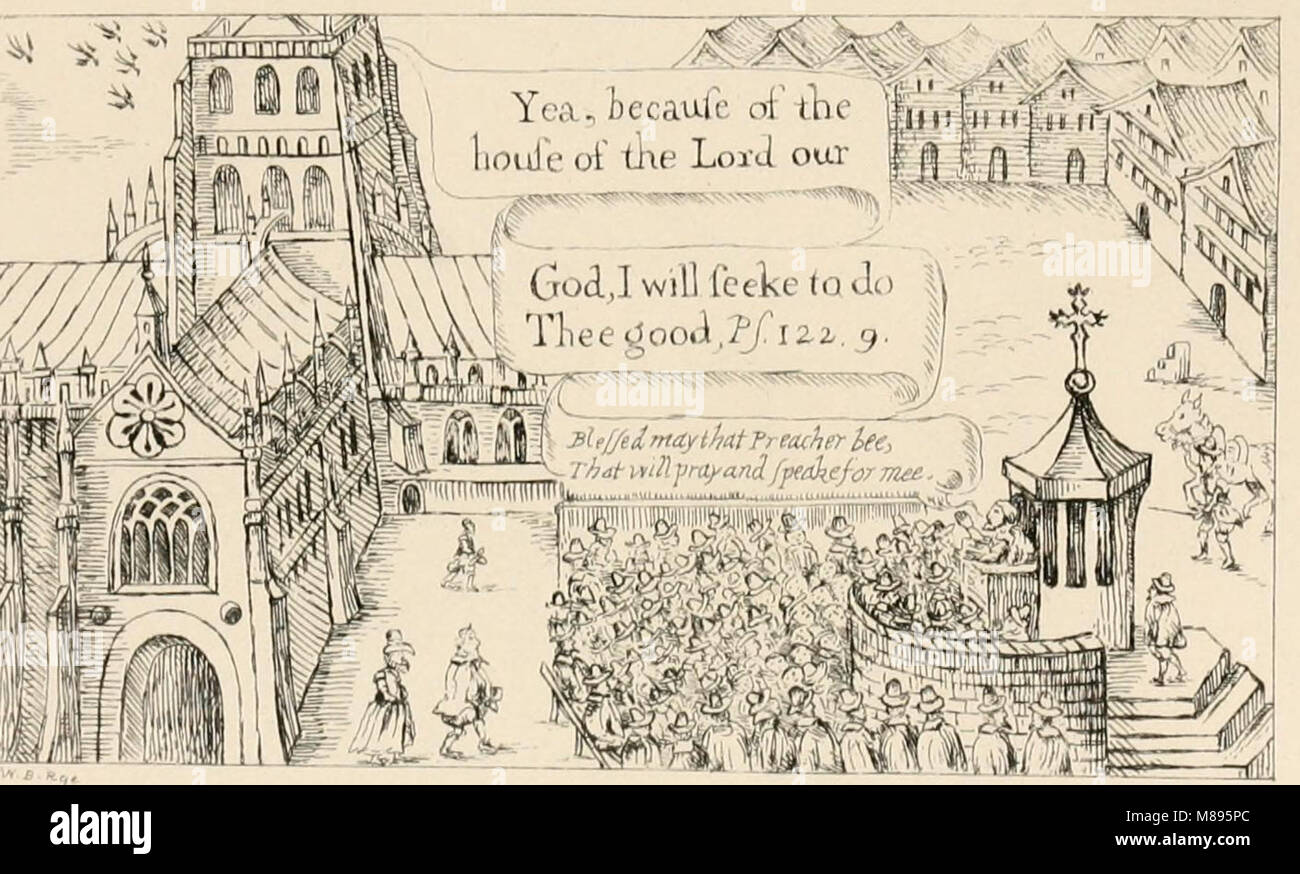 Yea, becauſe of the
houſe of the Lord our
God, I will ſeeke to do
Thee good, Pſ. 122. 9.
Bleſſed may that Preacher bee,
That will pray and ſpeake for mee.
W. B. Rye
alamy
alamy stock photo
M895PC
www.alamy.com